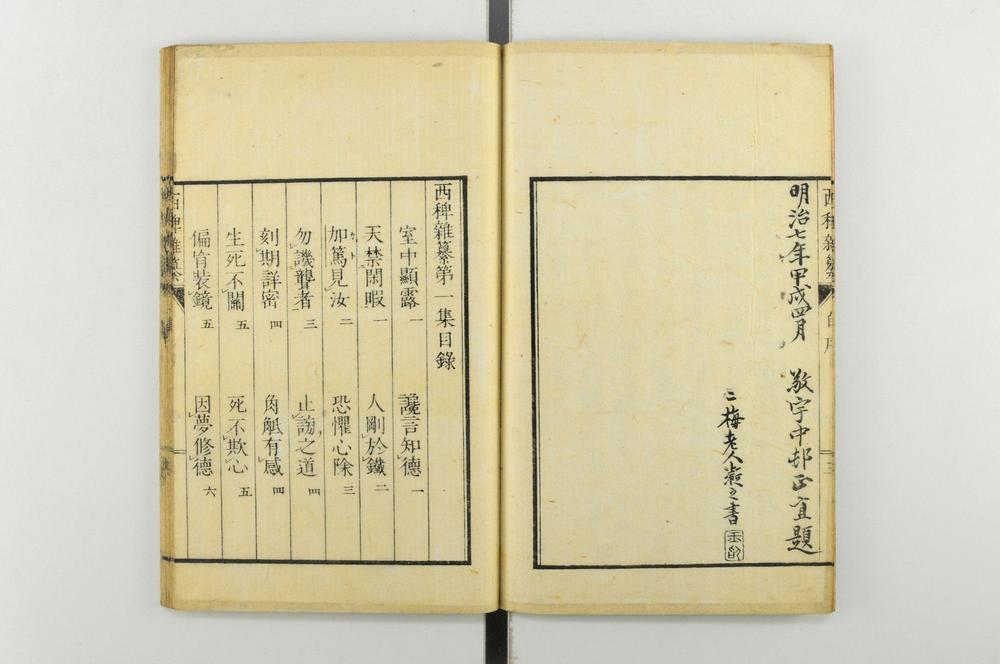 明治七年甲戌四月　敬宇中邨正直題
二梅老人
之書
西稗雜纂
自序
三
西稗雜纂第一集目錄
室中顯露 一　讒言知德 一
天禁閑暇 一　人剛於鐵 二
加篤見汝 二　恐懼心除 三
勿譏聾者 三　止謗之道 四
刻期詳密 四　角觝有感 四
生死不關 五　死不欺心 五
偏盲裝鏡 五　因夢修德 六